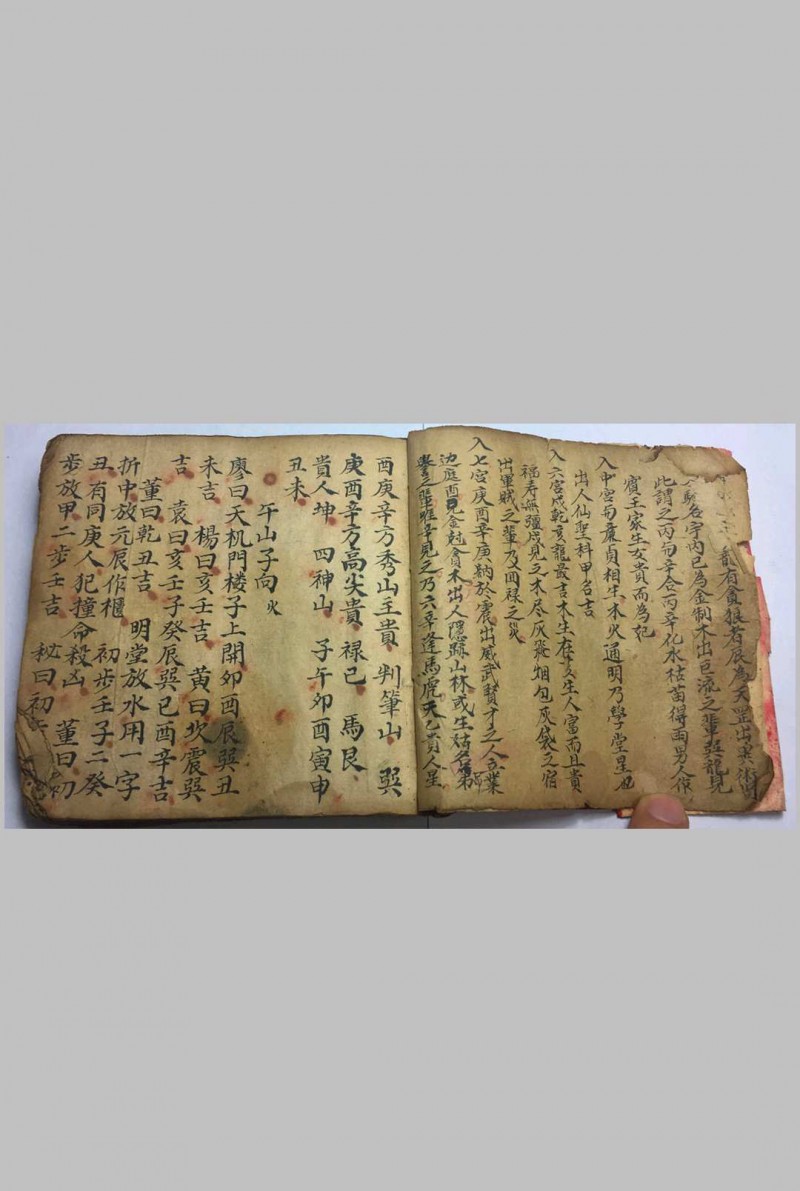 龍有貪狼者辰為天罡出異術
名字內已為金制木出巨流之輩巽龍見
此謂之丙旬辛合丙辛化水枯苗得雨男人作
賓王家生女貴而為妃
入中宮旬廉貞相生木火通明乃學堂星也
出人仙聖科甲名吉
入六宮戍乾亥龍最吉木生在亥生人富而且貴
福寿無疆戍見之木尽灰飛烟包灰袋之宿
出軍賊之輩乃酉禄之災
入七宮庚酉辛庚納於震出威武賢才之人立業
边庭酉見金尅貪木出人隱跡山林或生
輩之輩唯辛見之乃六辛逢馬鹿天乙貴人星
酉庚辛方秀山主貴 判筆山 巽
庚酉辛方高尖貴 禄巳 馬艮
貴人坤 四神山 子午卯酉寅申
丑未
午山子向 火
廖曰天机門楼子上開卯酉辰巽丑
未吉 楊曰亥壬吉 黄曰坎震巽
吉 袁曰亥壬子癸辰巽巳酉辛吉
董曰乾丑吉 明堂放水用一字
折中放元辰作櫃 初步壬子二癸
丑有同庚人犯撞命殺凶 董曰初
步放甲二步壬吉 秘曰初